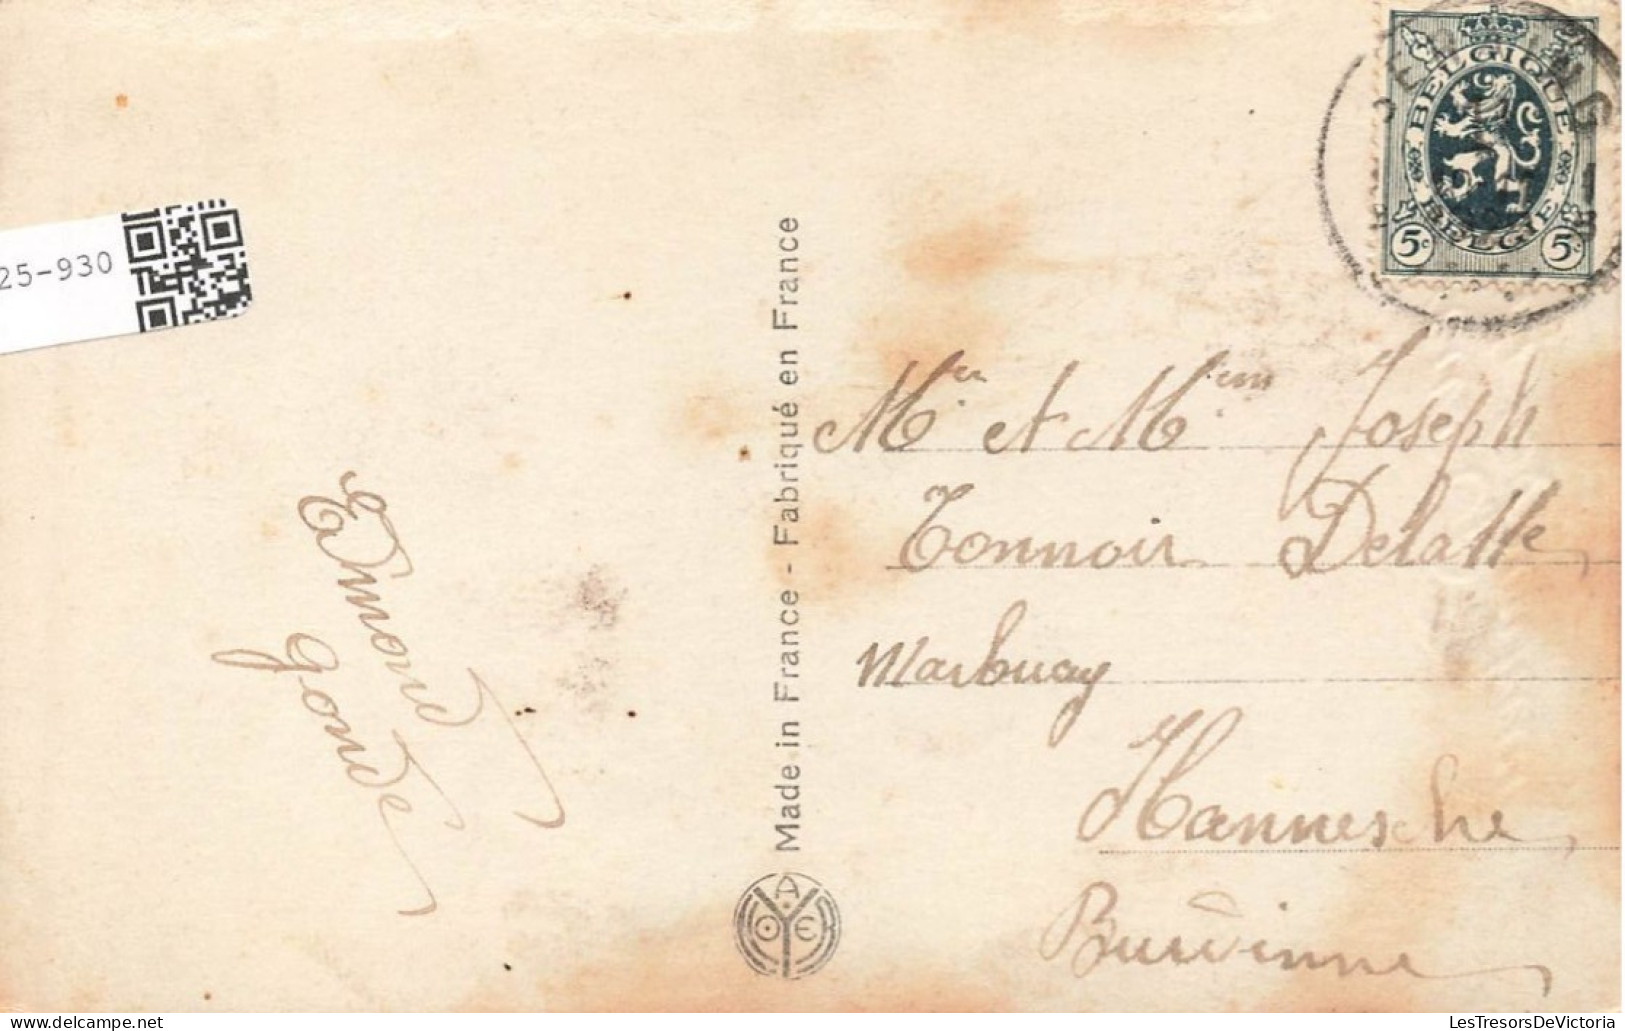 25-930
BELGIQUE
BELGIE
5c 5c
Made in France - Fabriqué en France
Mr et Mme Joseph
Tonnoir Delatte
Marbuay
Hannesche
Burdinne
Edmond
Gonde
LesTresorsDeVictoria